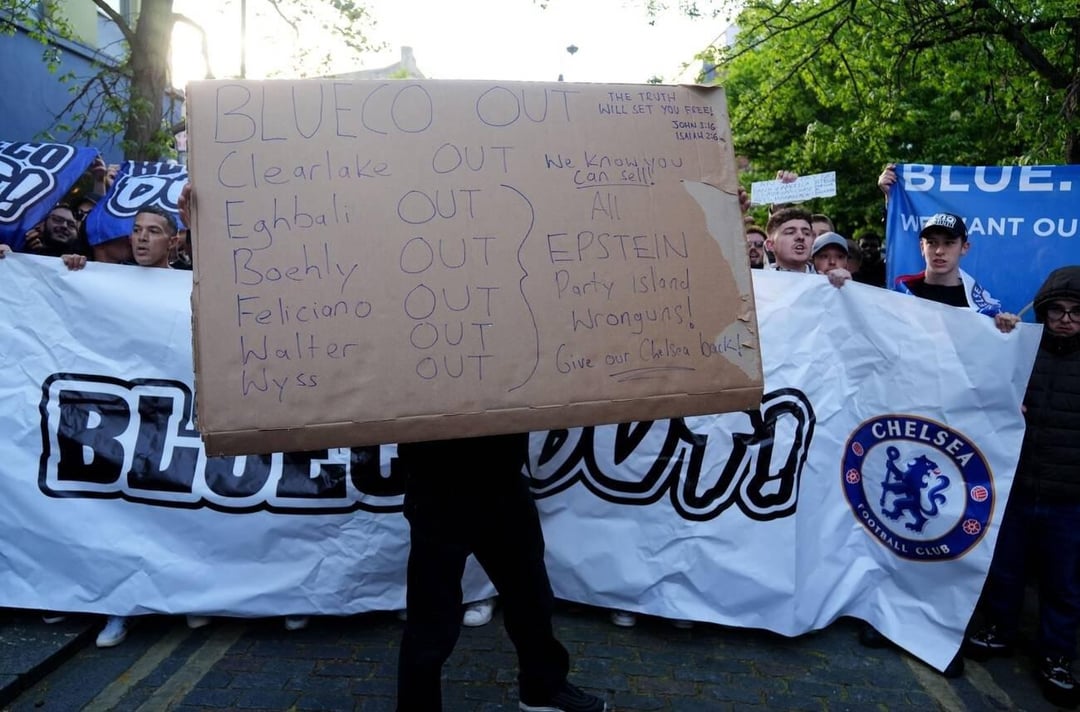 BLUECO OUT
THE TRUTH
WILL SET YOU FREE!
JOHN 1:16
ISAIAH 2:6
Clearlake OUT
We know you
can sell!
Eghbali OUT
Boehly OUT
Feliciano OUT
Walter OUT
Wyss OUT
All
EPSTEIN
Party Island
Wronguns!
Give our Chelsea back!
BLUE.
WE WANT OU
BLUECO OUT!
CHELSEA
FOOTBALL CLUB